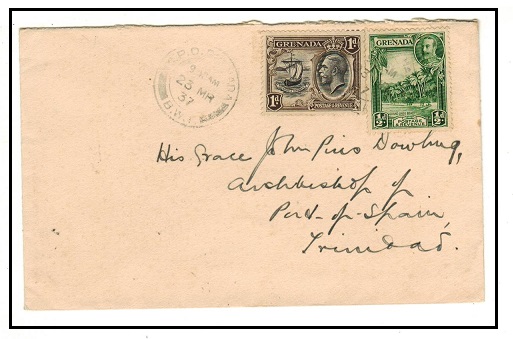 G.P.O.
9 AM
23 MR
37
B.W.I.
GRENADA
1d
1d
POSTAGE & REVENUE
GRENADA
½d
½d
POSTAGE & REVENUE
His Grace John Pius Dowling,
Archbishop of
Port-of-Spain,
Trinidad.